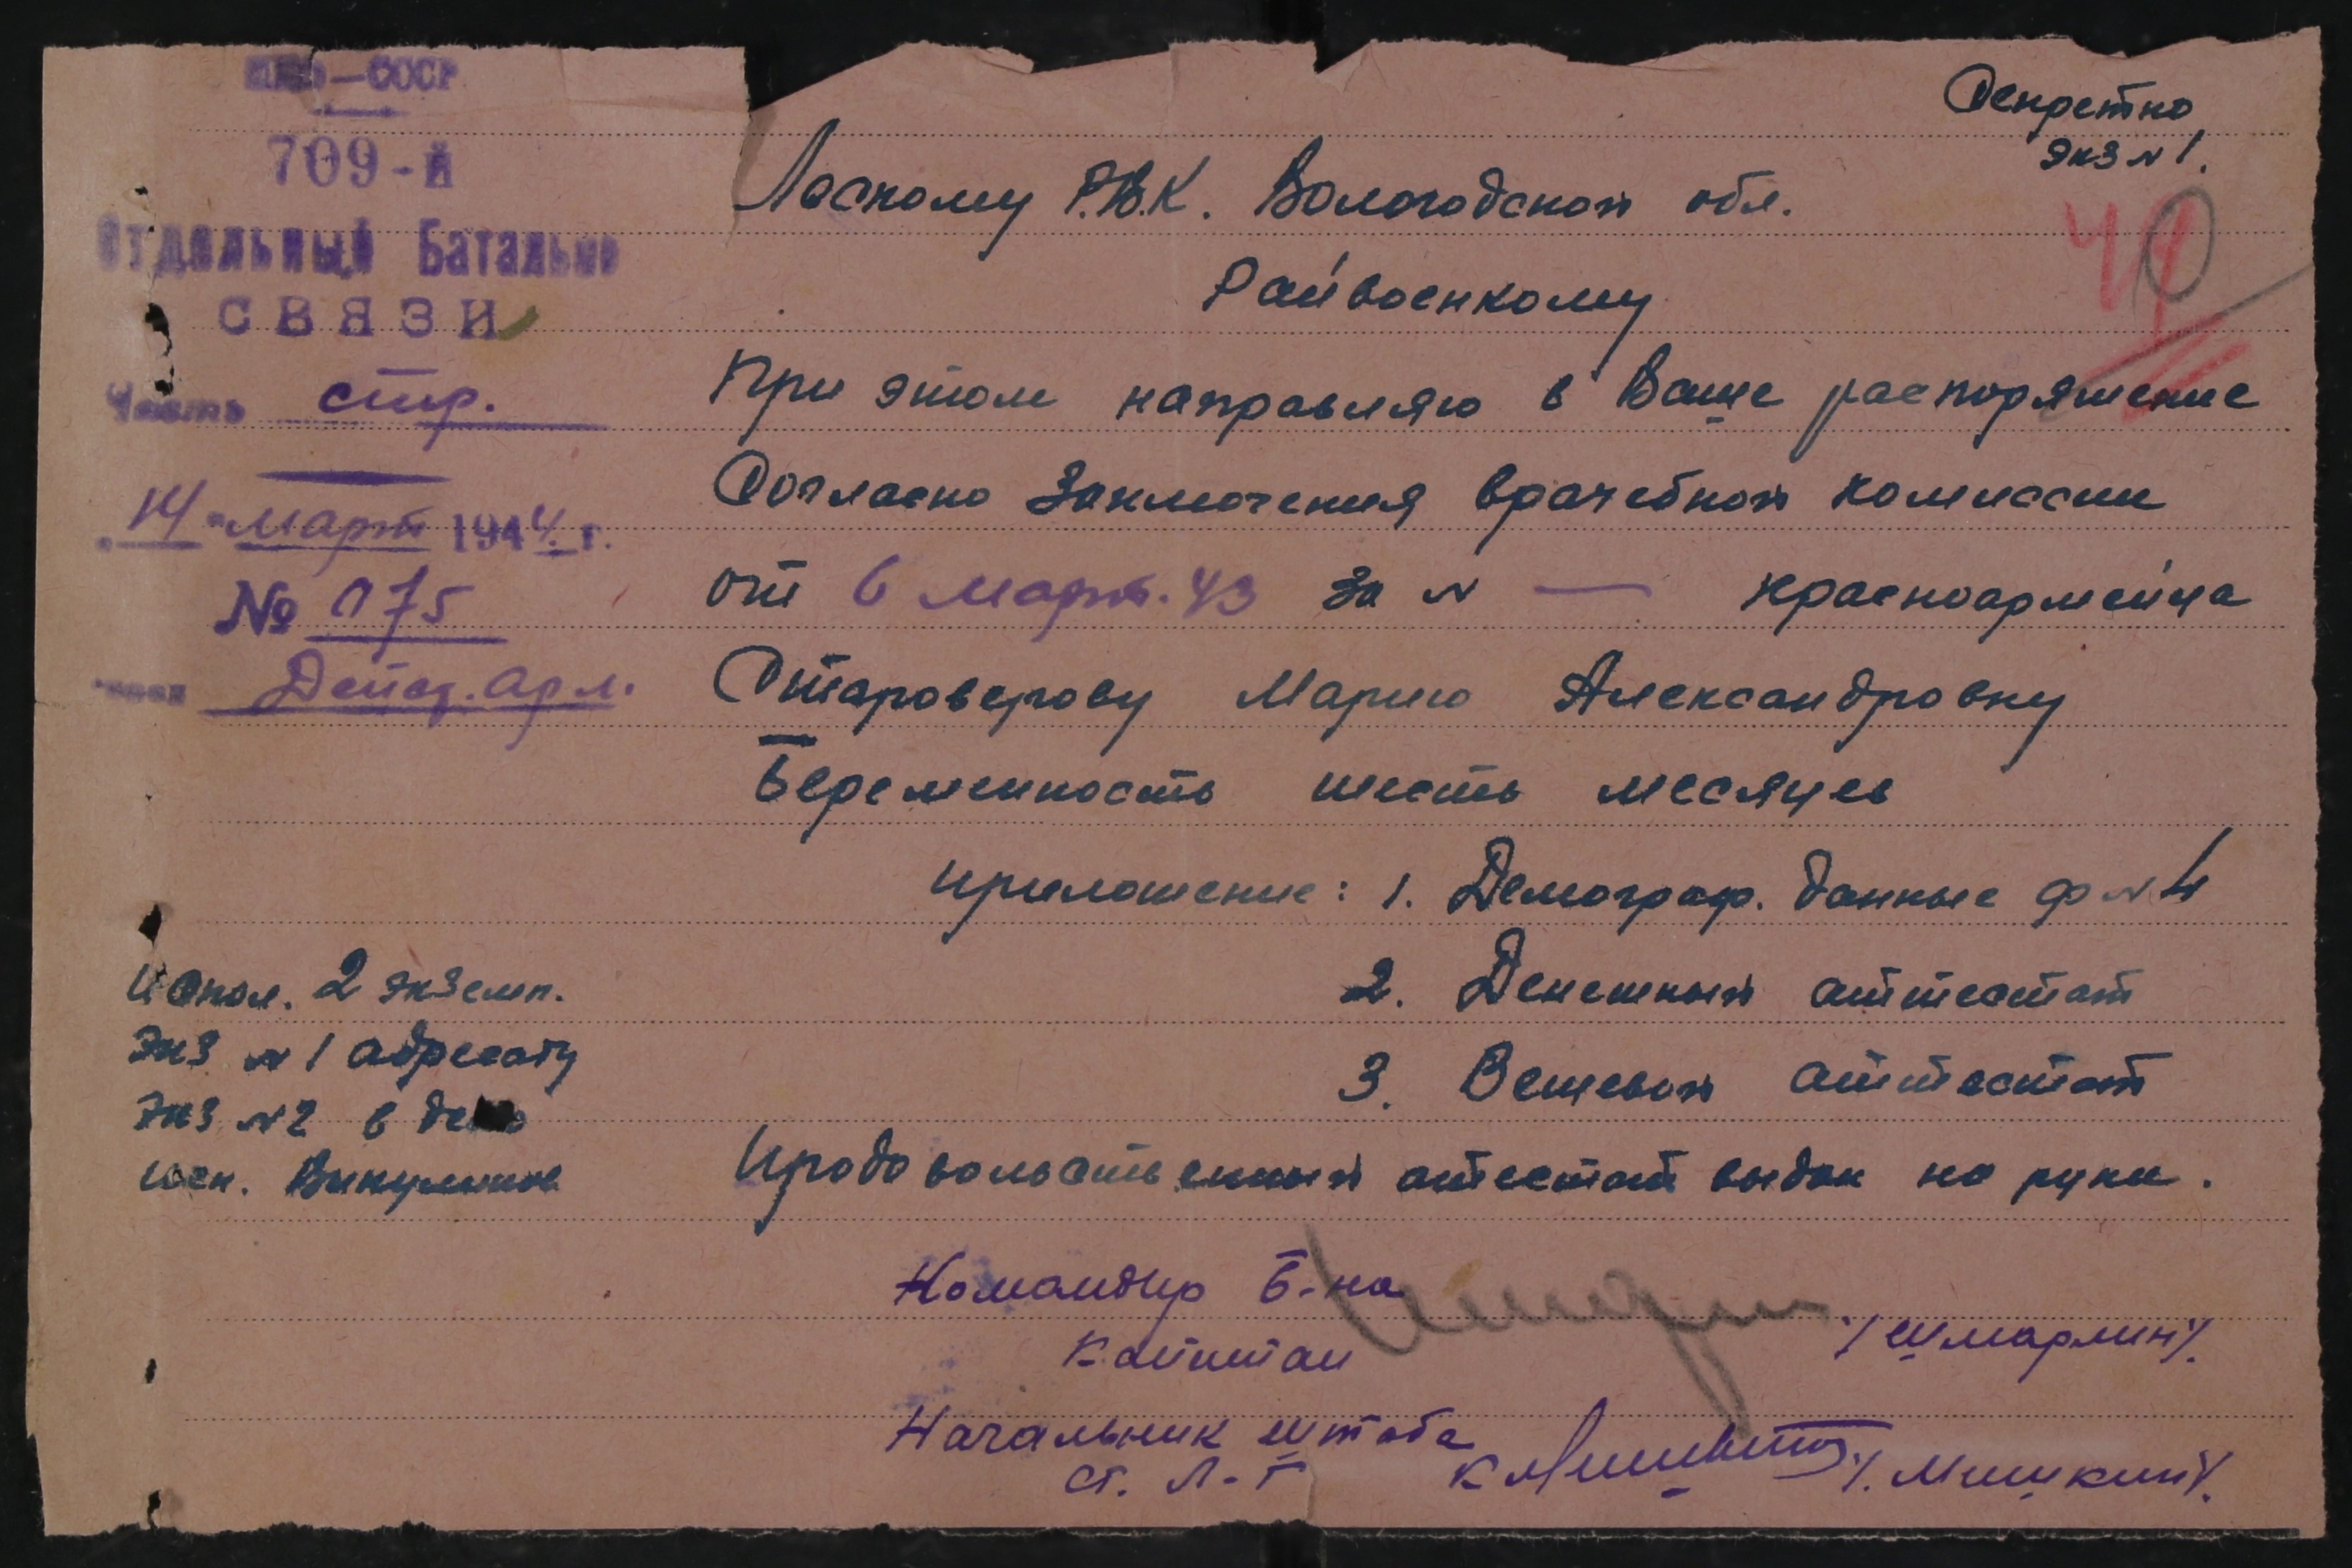 НКО—СССР
709-й
Отдельный Батальон
СВЯЗИ
Часть стр.
14 "март 1944 г.
№ 075
Дейст. арм.
Секретно
экз № 1.
Лескому Р.В.К. Вологодской обл.
Райвоенкому
При этом направляю в Ваше распоряжение
Согласно Заключения врачебной комиссии
от 6 март. 43 за № — красноармейца
Староверову Марию Александровну
Беременность шесть месяцев
приложение: 1. Демограф. данные ф № 4
2. Денежный аттестат
3. Вещевой аттестат
Продовольственный атестат выдан на руки.
Испол. 2 экземп.
Экз № 1 адресату
Экз № 2 в дело
исп. Викулинов
Командир б-на
Капитан /Шмарлин/.
Начальник штаба
ст. л-т /Мишкин/.